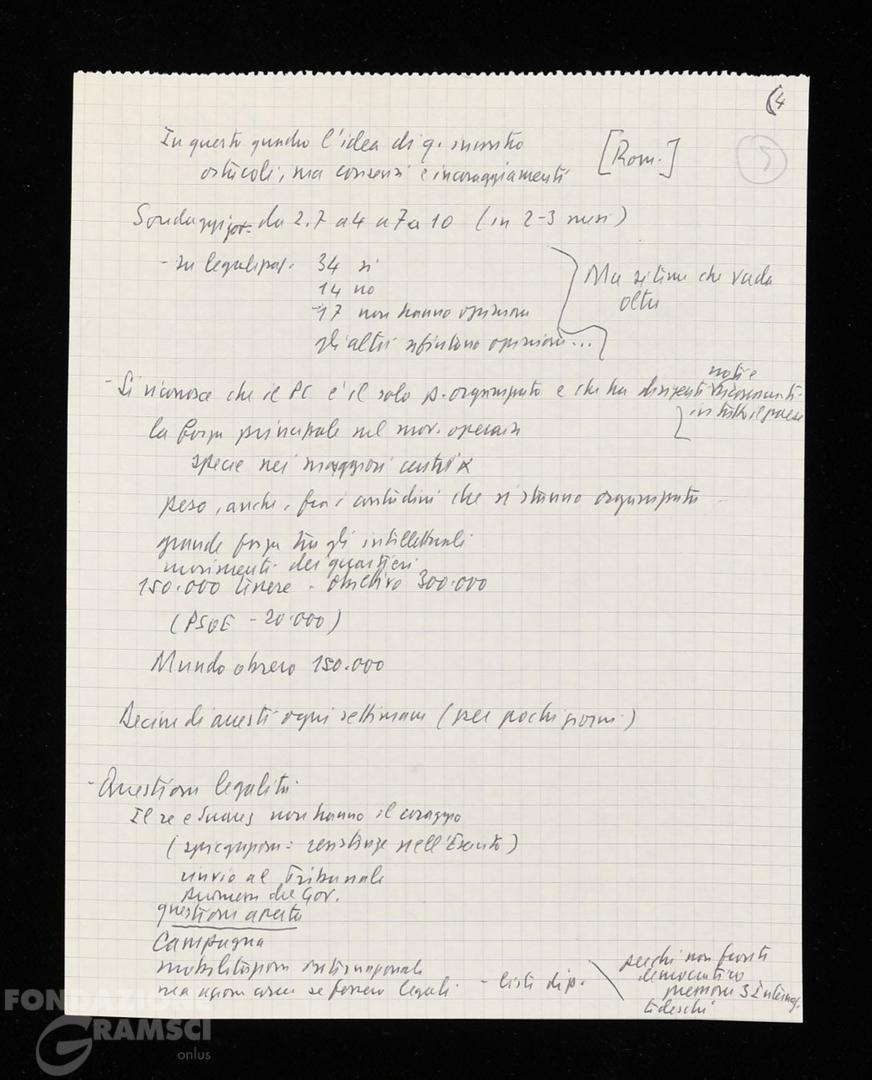 (4
5
In questo quadro l'idea di q. incontro [Rom.]
ostacoli, ma consensi e incoraggiamenti
Sondaggi da 2,7 a 4 a 7 a 10 (in 2-3 mesi)
- su legalizzaz. 34 si
14 no
17 non hanno opinioni
gli altri rifiutano opinioni...
Ma si stima che vada
oltre
- Si riconosce che il PC è il solo p. organizzato e che ha dirigenti noti e
in tutto il paese
la forza principale nel mov. operaio
specie nei maggiori centri
peso, anche, fra i contadini che si stanno organizzando
grande forza tra gli intellettuali
movimenti dei quartieri
150.000 tessere - obiettivo 300.000
(PSOE - 20.000)
Mundo obrero 150.000
Decine di arresti ogni settimana (per pochi giorni)
- Questione legalità
Il re e Suarez non hanno il coraggio
(spiegazione: resistenze nell'Esercito)
rinvio al Tribunale
del Gov.
questione aperta
Campagna
mobilitazione internazionale
ma agiscono come se fossero legali - liste di p.
perché non fronte
democratico
pressioni 3 Internaz.
tedeschi
FONDAZIONE
GRAMSCI
onlus